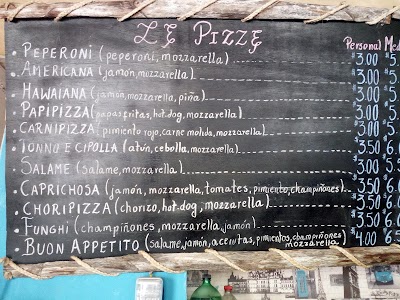 LE PIZZE
Personal Med
• PEPERONI (peperoni, mozzarella) $3.00 $5.
• AMERICANA (jamón, mozzarella) $3.00 $5.
• HAWAIANA (jamón, mozzarella, piña) $3.00
• PAPIPIZZA (papas fritas, hot dog, mozzarella) $3.00
• CARNIPIZZA (pimiento rojo, carne molida, mozzarella) $3.00
• TONNO E CIPOLLA (atún, cebolla, mozzarella) $3.50 $6.
• SALAME (salame, mozzarella) $3.00 $5.
• CAPRICHOSA (jamón, mozzarella, tomates, pimiento, champiñones) $3.50 $6.
• CHORIPIZZA (chorizo, hot dog, mozzarella) $3.50 $6.
• FUNGHI (champiñones, mozzarella, jamón) $3.50 $6.
• BUON APPETITO (salame, jamón, aceitunas, pimientos, champiñones $4.00 $6.5
mozzarella)